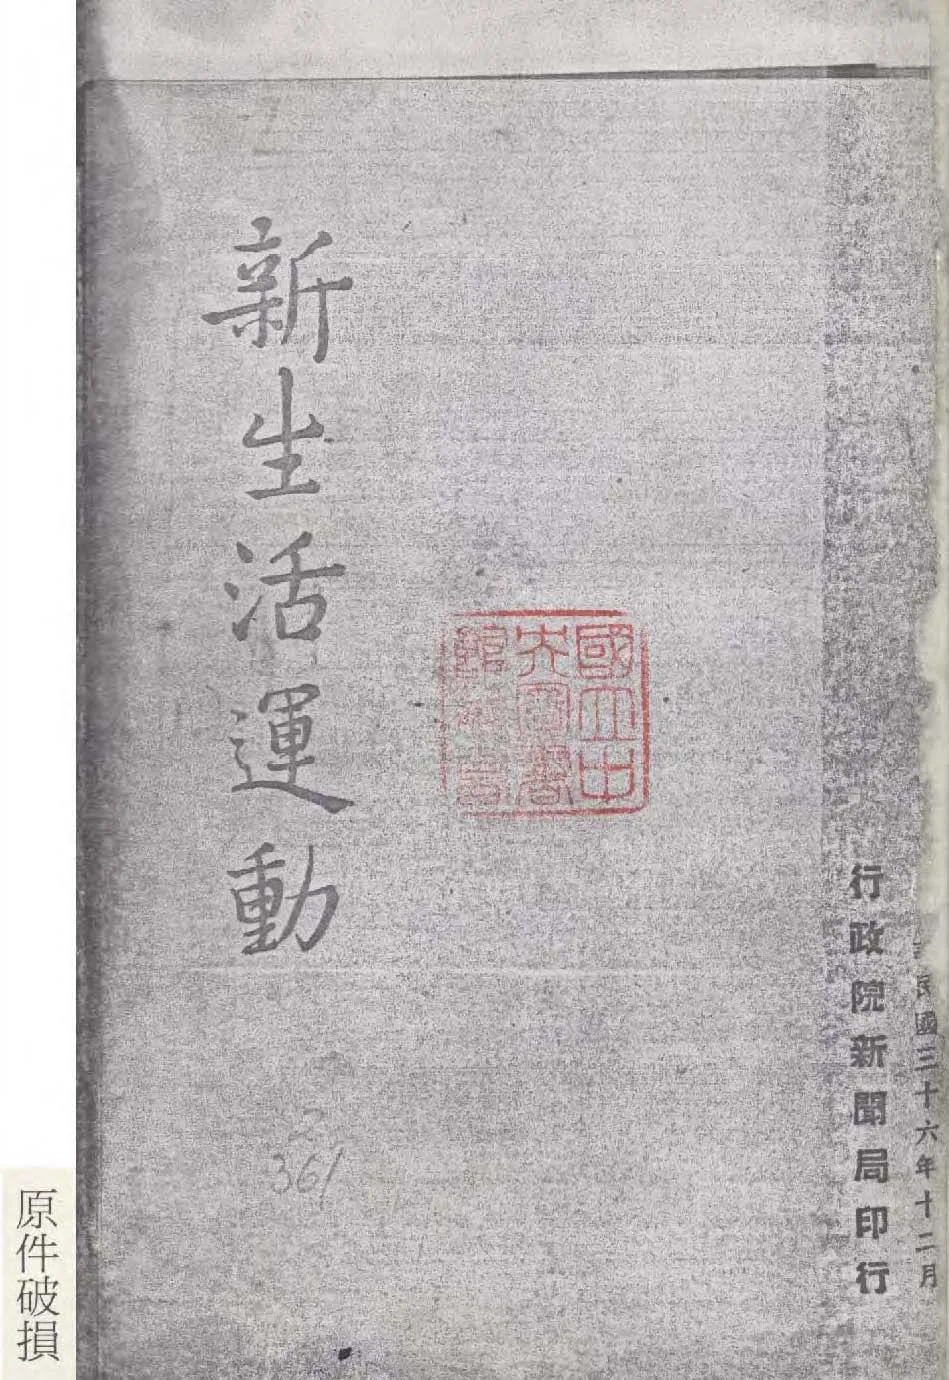 民國三十六年十二月
行政院新聞局印行
國立中
央圖書
館藏書
新生活運動
361
原件破損